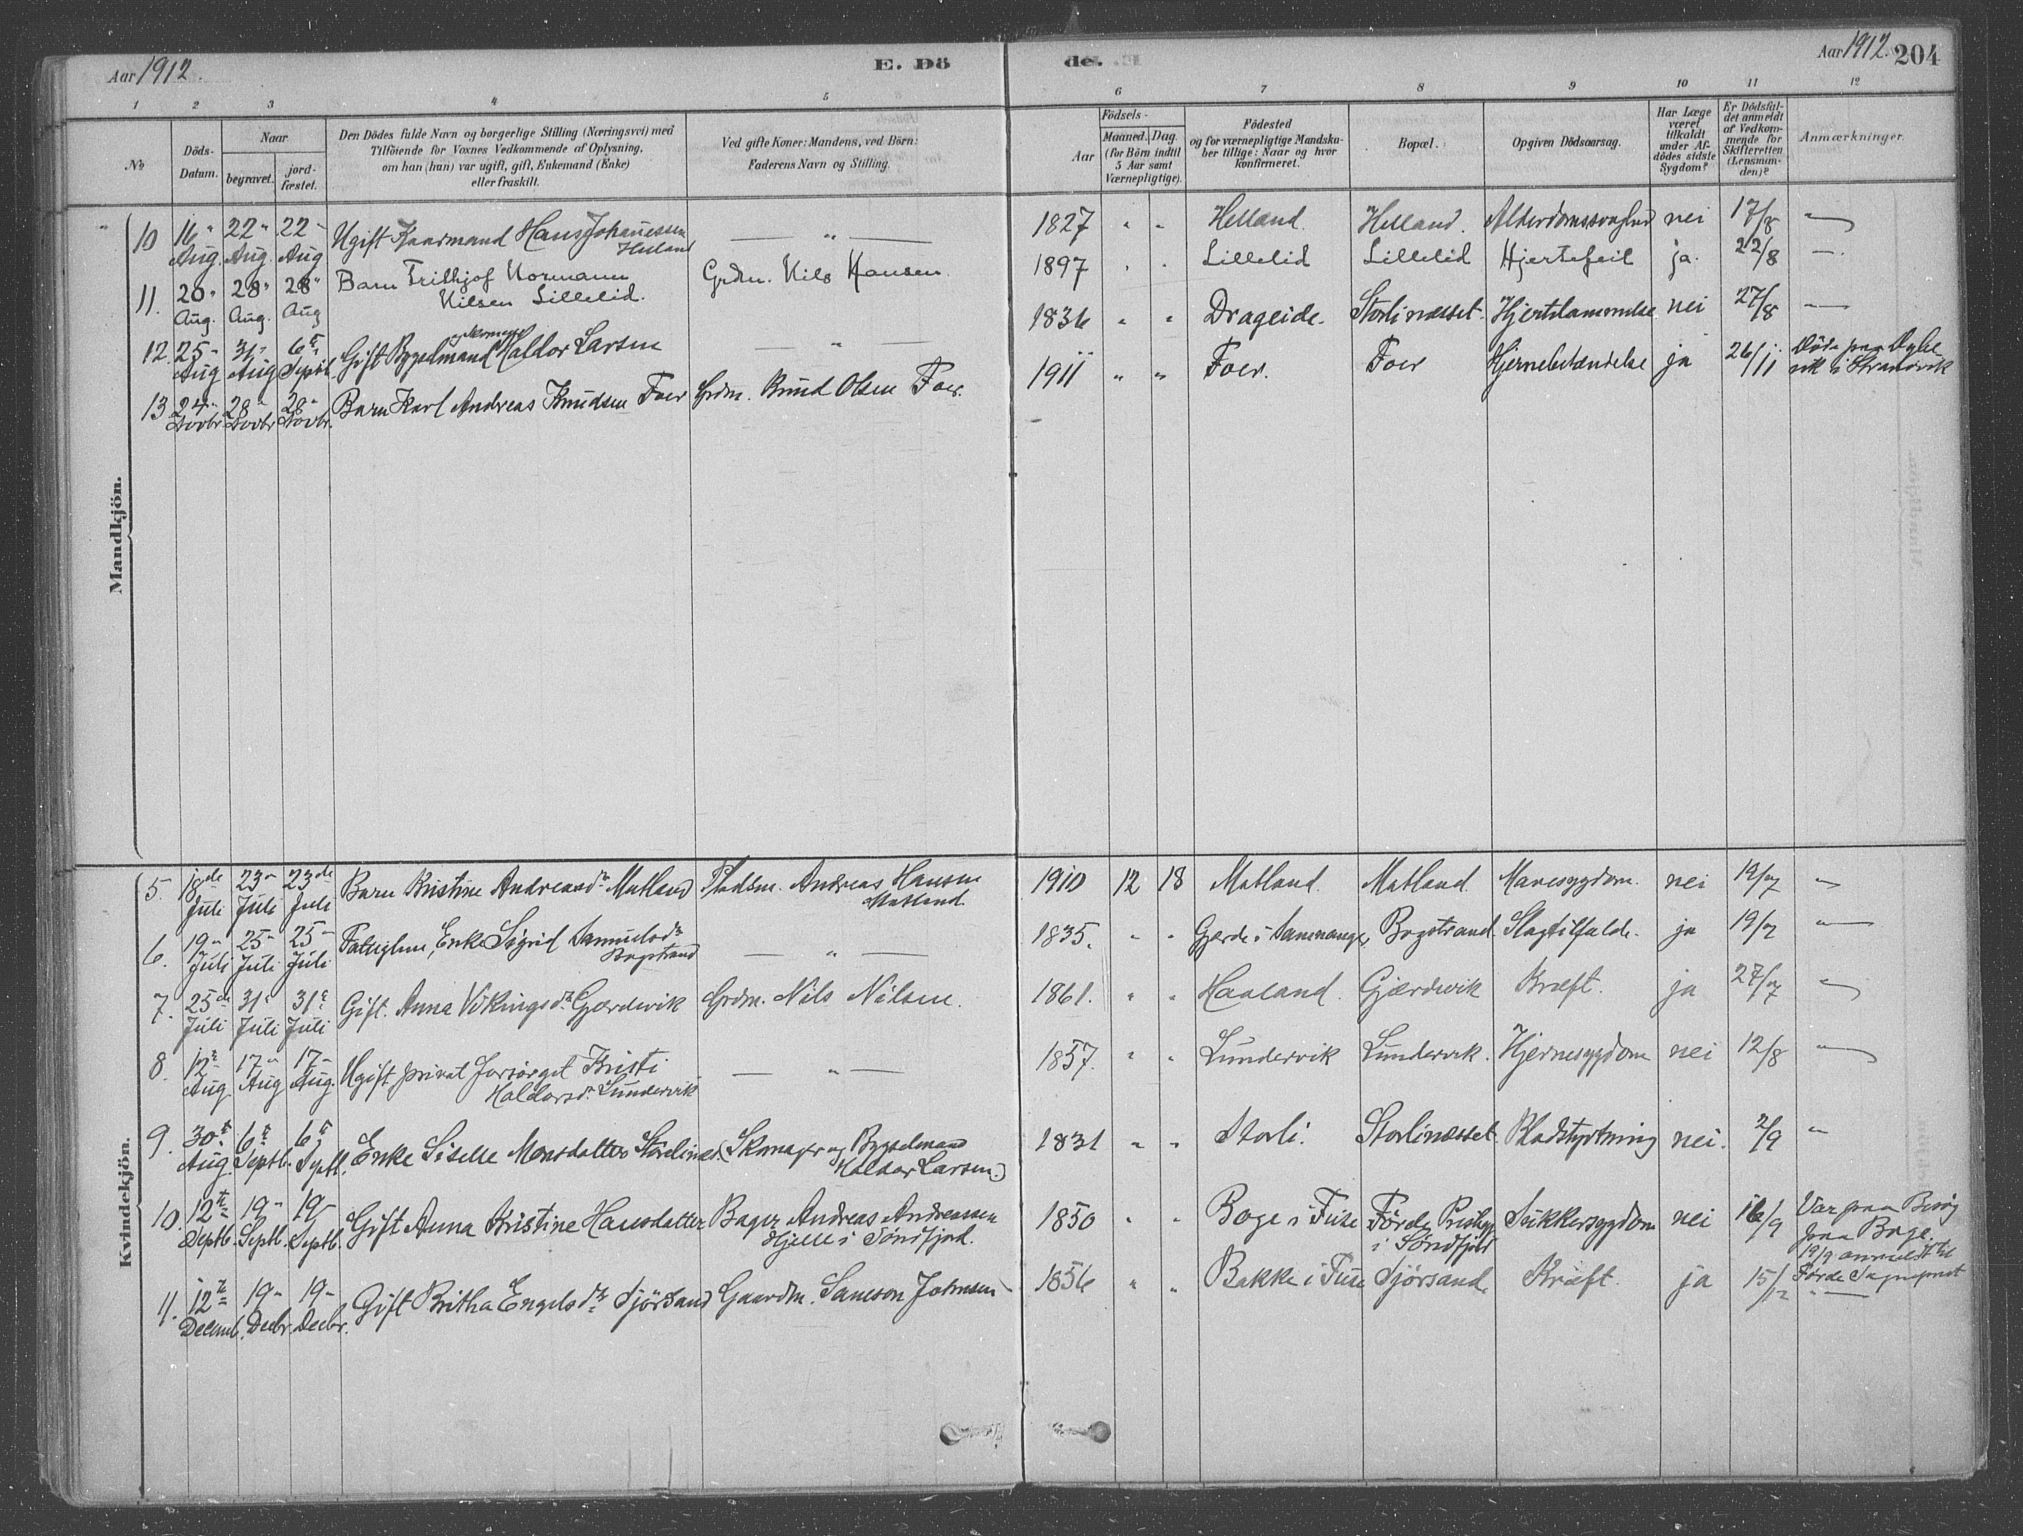 Aar 1912. E. Dö de. Aar 1912. 204
1 2 3 4 5 6 7 8 9 10 11 12
No Döds-Datum. Naar begravet. jordfæstet. Den Dödes fulde Navn og borgerlige Stilling (Næringsvei) med Tilföiende for Voxnes Vedkommende af Oplysning, om han (hun) var ugift, gift, Enkemand (Enke) eller fraskilt. Ved gifte Koner: Mandens, ved Börn: Faderens Navn og Stilling. Födsels- Aar Maaned. Dag. (for Börn indtil 5 Aar samt Værnepligtige). Födested og for værnepligtige Mandskaber tillige: Naar og hvor konfirmeret. Bopæl. Opgiven Dödsaarsag. Har Læge været tilkaldt under Afdödes sidste Sygdom? Er Dödsfaldet anmeldt af Vedkommende for Skifteretten (Lensmanden)? Anmærkninger.
Mandkjön.
10 16 Aug. 22 Aug. 22 Aug Ugift Kaarmand Hans Johanessen Helland — " — 1827 " " Helland. Helland. Alderdomssvaghed nei 17/8 —
11. 20 Aug. 28 Aug. 28 Aug Barn Frithjof Normann Nilsen Lillelid. Grdm. Nils Hansen. 1897 " " Lillelid Lillelid Hjertefeil ja. 22/8 —
12. 25 Aug 31 Aug 6te Septb. Gift Bygselmand Haldor Larsen — " — 1836 " " Drageide. Storlinesset. Hjertelammelse nei 27/8 —
13 24 Novbr 28 Novbr 28 Novbr. Barn Karl Andreas Knudsen Foer Grdm. Knud Olsen Foer. 1911 " " Foer. Foer Hjernebetændelse ja 26/11 Döde paa i Strandvik
Kvindekjön.
5. 18de Juli 23 Juli 23de Juli Barn Kristine Andreasdr Matland Pladsm. Andreas Hansen Matland. 1910 12 18 Matland. Matland. Mavesygdom. nei 19/7 —
6. 19 Juli 25 Juli 25 Juli Enke Sigrid Samuelsdr Bogstrand — " — 1835. " " Gjerde i Samnanger Bogstrand. Slagtilfælde. ja 19/7 —
7. 25de Juli 31te Juli 31te Juli Gift. Anna Vikingsdr. Gjerdevik Grdm. Nils Nilsen. 1861. " " Haaland. Gjerdevik Kræft. ja 27/7 —
8. 12te Aug. 17 Aug 17 Aug. Ugift privat forsörget Kristi Haldorsdr. Lundervik — " — 1857. " " Lundervik Lundervik. Hjernesygdom nei 12/8 —
9. 30te Aug. 6te Septb. 6te Septb. Enke Siselle Monsdatter Storlines. (Skomager og Bygselmand Haldor Larsen.) 1831 " " Storli. Storlinesset Blodstyrtning nei. 2/9 "
10. 12te Septb. 19 Septb. 19 Septb. Gift Anna Kristine Hansdatter Bager Andreas Andreassen Hjelle i Söndfjord. 1850 " " Boge i Fuse Förde Prestgj. i Söndfjord Sukkersygdom nei 16/9 Var paa Besög paa Boge. 19/9 anmeldt til Förde
11. 12te Decemb. 19 Decbr. 19 Decbr. Gift Britha Engelsdr. Sjörsand Gaardm. Samson Johnsen 1856 " " Bakke i Fuse Sjörsand. Kræft. ja 15/12 " —